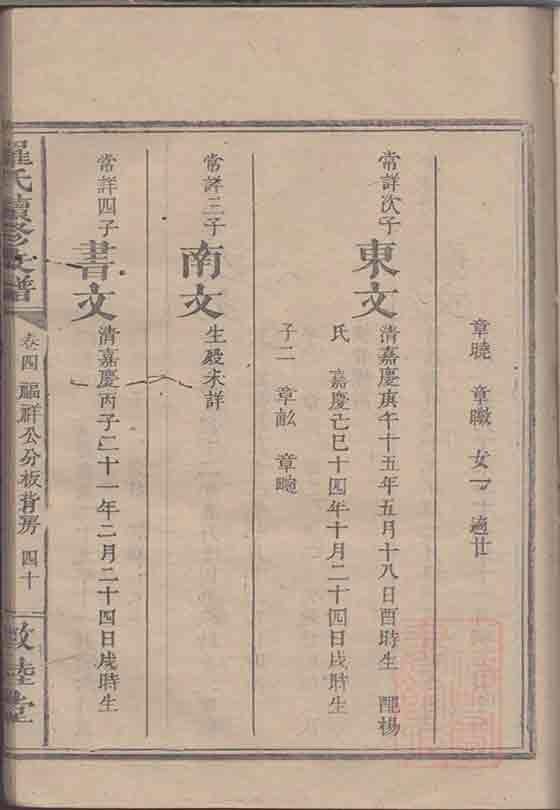 章曉 章瞮 女一 適廿
常詳次子
東文
清嘉慶庚午十五年五月十八日酉時生 配楊
氏 嘉慶己巳十四年十月二十四日戌時生
子二 章畝 章畹
常詳三子
南文
生殁未詳
常詳四子
書文
清嘉慶丙子二十一年二月二十四日戌時生
羅氏續修支譜
卷四 福祥公分板背房 四十
敦陸堂